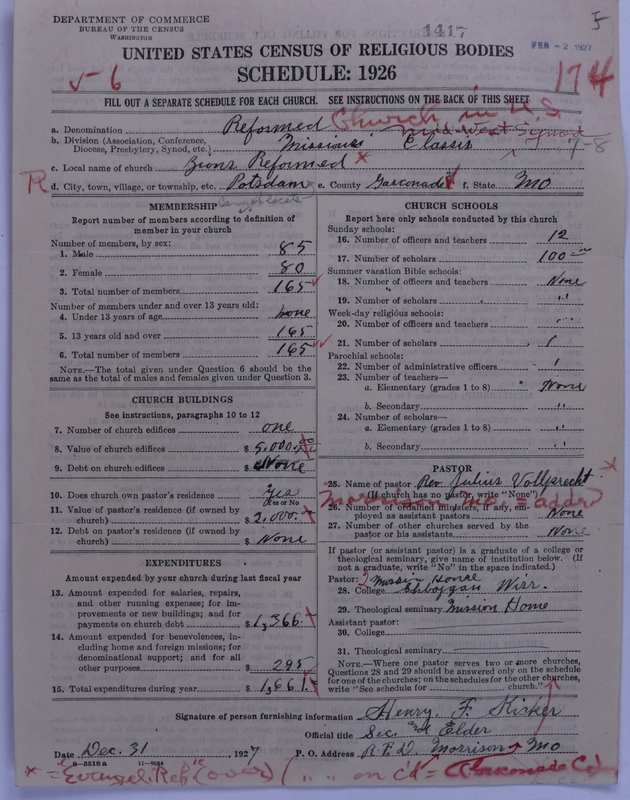 DEPARTMENT OF COMMERCE
BUREAU OF THE CENSUS
WASHINGTON
1417
FEB - 2 1927
UNITED STATES CENSUS OF RELIGIOUS BODIES
SCHEDULE: 1926
5-6
174
FILL OUT A SEPARATE SCHEDULE FOR EACH CHURCH. SEE INSTRUCTIONS ON THE BACK OF THIS SHEET
a. Denomination Reformed Church in U.S.
Mid West Synod
b. Division (Association, Conference, Diocese, Presbytery, Synod, etc.) Missouri Classis 7-8
c. Local name of church Zions Reformed x
R d. City, town, village, or township, etc. Potsdam e. County Gasconade f. State MO
MEMBERSHIP
Report number of members according to definition of
member in your church
Number of members, by sex:
1. Male 85
2. Female 80
3. Total number of members 165
Number of members under and over 13 years old:
4. Under 13 years of age none
5. 13 years old and over 165
6. Total number of members 165
NOTE.—The total given under Question 6 should be
same as the total of males and females given under Question 3.
CHURCH BUILDINGS
See instructions, paragraphs 10 to 12
7. Number of church edifices one
8. Value of church edifices $ 5,000.00
9. Debt on church edifices $ None
10. Does church own pastor's residence yes
Yes or No
11. Value of pastor's residence (if owned by
church) $ 2,000.
12. Debt on pastor's residence (if owned by
church) $ None
EXPENDITURES
Amount expended by your church during last fiscal year
13. Amount expended for salaries, repairs,
and other running expenses; for im-
provements or new buildings; and for
payments on church debt $ 1,366.
14. Amount expended for benevolences, in-
cluding home and foreign missions; for
denominational support; and for all
other purposes $ 295
15. Total expenditures during year $ 1,661.
CHURCH SCHOOLS
Report here only schools conducted by this church
Sunday schools:
16. Number of officers and teachers 12
17. Number of scholars 100
Summer vacation Bible schools:
18. Number of officers and teachers None
19. Number of scholars "
Week-day religious schools:
20. Number of officers and teachers "
21. Number of scholars
Parochial schools:
22. Number of administrative officers
23. Number of teachers—
a. Elementary (grades 1 to 8) None
b. Secondary "
24. Number of scholars—
a. Elementary (grades 1 to 8) "
b. Secondary "
PASTOR
25. Name of pastor Rev Julius Vollprecht
(If church has no pastor, write "None")
Morrison Mo. = addr
26. Number of ordained ministers, if any, em-
ployed as assistant pastors None
27. Number of other churches served by the
pastor or his assistants None
If pastor (or assistant pastor) is a graduate of a college or
theological seminary, give name of institution below. (If
not a graduate, write "No" in the space indicated.)
Pastor: Mission House
28. College Sheboygan Wisc.
29. Theological seminary Mission House
Assistant pastor:
30. College
31. Theological seminary
NOTE.—Where one pastor serves two or more churches,
Questions 28 and 29 should be answered only on the schedule
for one of the churches; on the schedules for the other churches,
write "See schedule for church."
Signature of person furnishing information Henry. F. Kicker
Official title Sec. and Elder
Date Dec. 31 1927 P. O. Address R.F.D. Morrison MO
8—5518 a 11—9044
* = "Evangel. Ref" (over) ( " " on c'd = Gasconade Co)